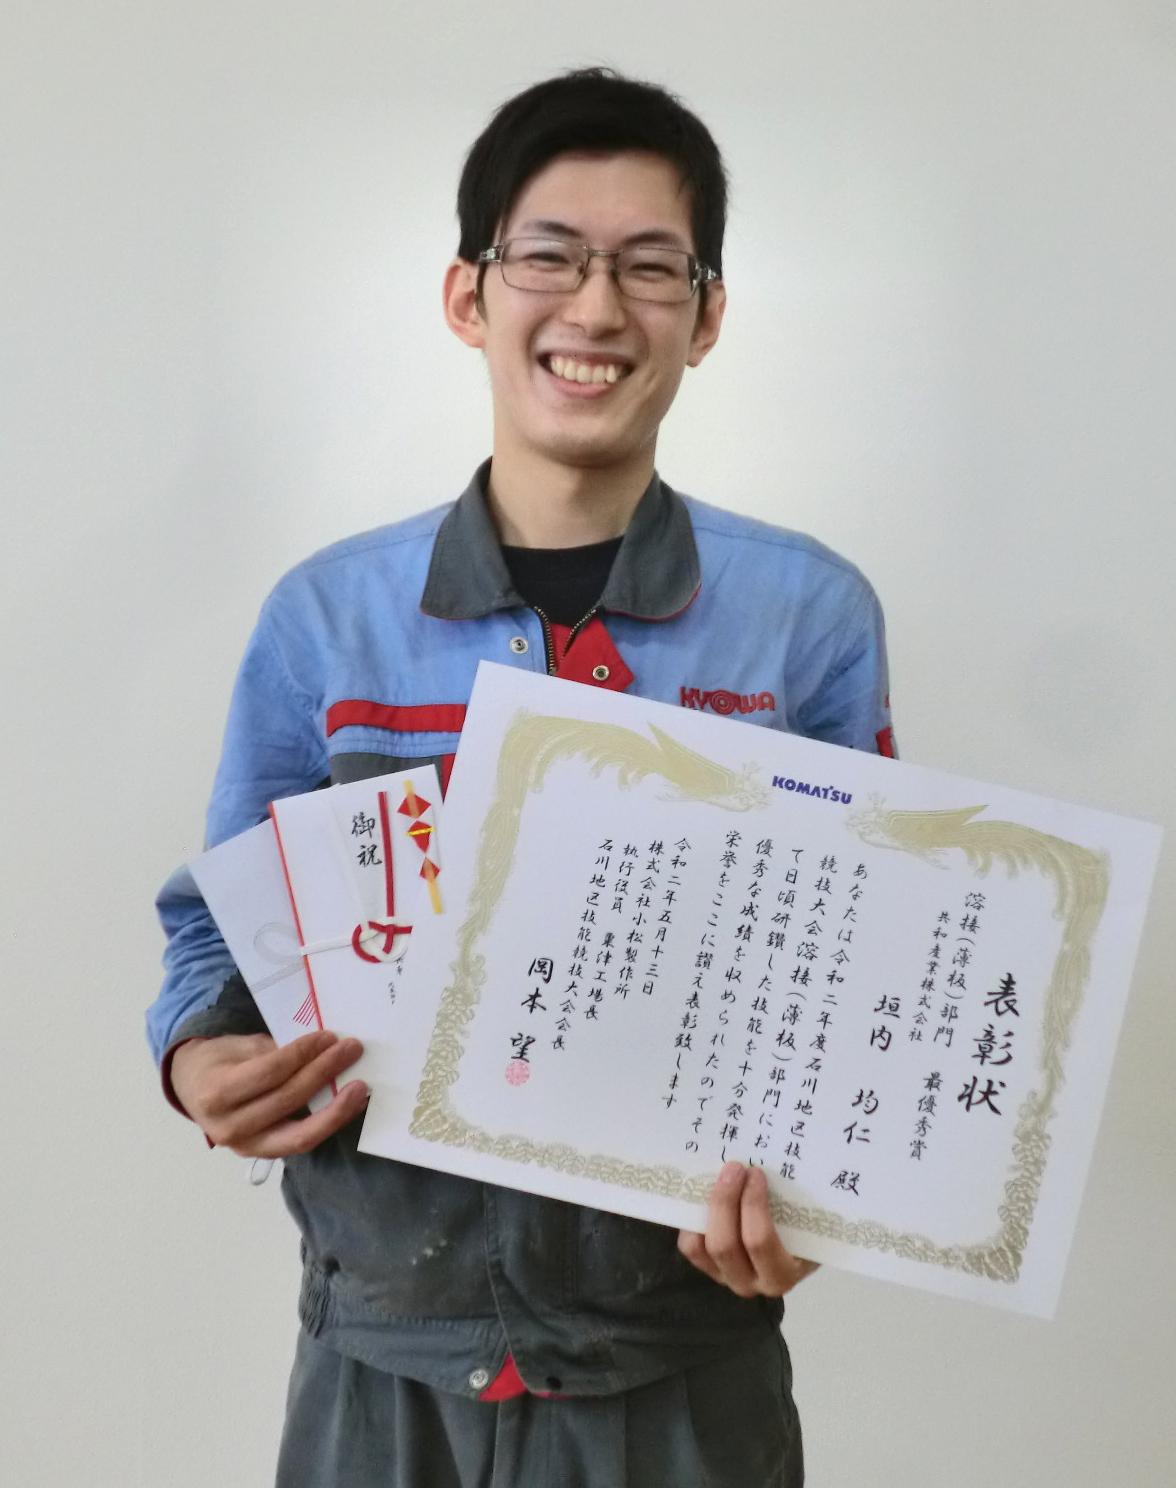 KYOWA
KOMATSU
表彰状
溶接(薄板)部門 最優秀賞
共和産業株式会社
垣内 均仁 殿
あなたは令和二年度石川地区技能
競技大会溶接(薄板)部門におい
て日頃研鑽した技能を十分発揮し
優秀な成績を収められたのでその
栄誉をここに讃え表彰致します
令和二年五月十三日
株式会社小松製作所
執行役員 粟津工場長
石川地区技能競技大会会長
岡本 望
御祝